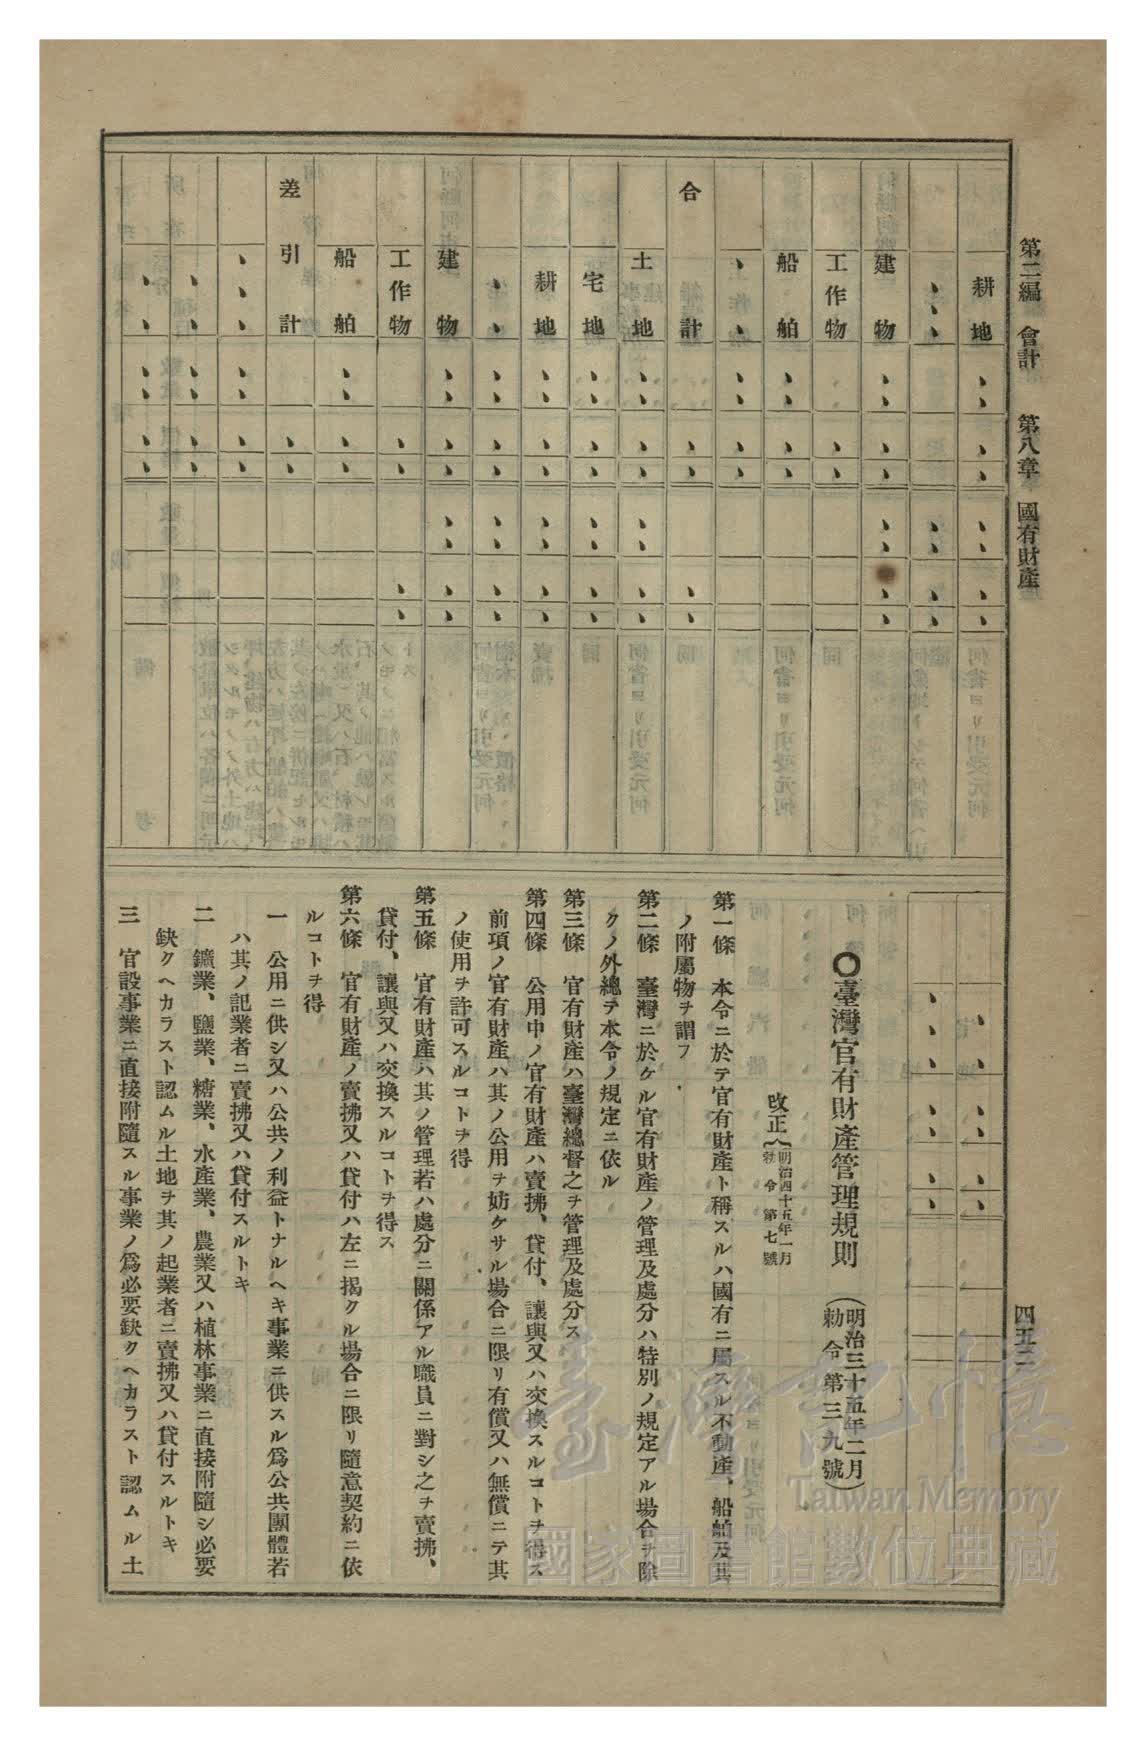 第二編　會計　　第八章　國有財產
四五二
耕地
、、、
建物
工作物
船舶
、、
合計
土地
宅地
耕地
、、
建物
工作物
船舶
差引計
、、、
、、
、、
〇臺灣官有財產管理規則（明治三十五年二月勅令第三九號）
改正（明治四十五年一月勅令第七號
第一條　本令ニ於テ官有財產ト稱スルハ國有ニ屬スル不動產、船舶及其
ノ附屬物ヲ謂フ
第二條　臺灣ニ於ケル官有財產ノ管理及處分ハ特別ノ規定アル場合ヲ除
クノ外總テ本令ノ規定ニ依ル
第三條　官有財產ハ臺灣總督之ヲ管理及處分ス
第四條　公用中ノ官有財產ハ賣拂、貸付、讓與又ハ交換スルコトヲ得ス
前項ノ官有財產ハ其ノ公用ヲ妨ケサル場合ニ限リ有償又ハ無償ニテ其
ノ使用ヲ許可スルコトヲ得
第五條　官有財產ハ其ノ管理若ハ處分ニ關係アル職員ニ對シ之ヲ賣拂、
貸付、讓與又ハ交換スルコトヲ得ス
第六條　官有財產ノ賣拂又ハ貸付ハ左ニ揭クル場合ニ限リ隨意契約ニ依
ルコトヲ得
一　公用ニ供シ又ハ公共ノ利益トナルヘキ事業ニ供スル爲公共團體若
ハ其ノ記業者ニ賣拂又ハ貸付スルトキ
二　鑛業、鹽業、糖業、水產業、農業又ハ植林事業ニ直接附隨シ必要
缺クヘカラスト認ムル土地ヲ其ノ起業者ニ賣拂又ハ貸付スルトキ
三　官設事業ニ直接附隨スル事業ノ爲必要缺クヘカラスト認ムル土
臺灣記憶
Taiwan Memory
國家圖書館數位典藏